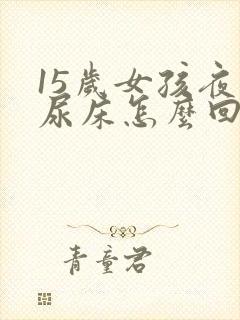 15歲女孩夜
尿床怎麼回
青童君